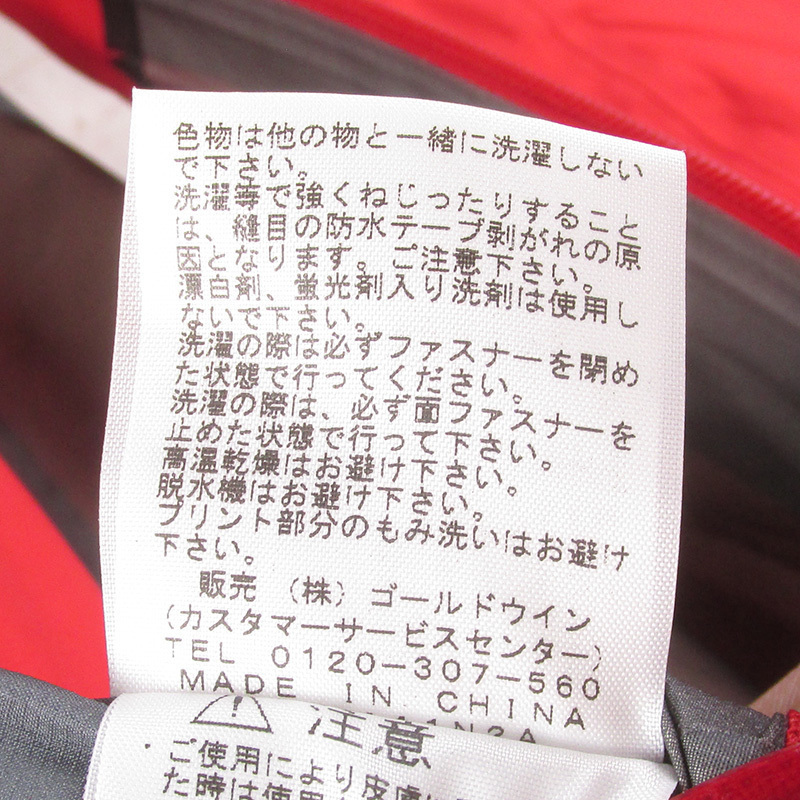 色物は他の物と一緒に洗濯しない
で下さい。
洗濯等で強くねじったりすること
は、縫目の防水テープ剥がれの原
因となります。ご注意下さい。
漂白剤、蛍光剤入り洗剤は使用し
ないで下さい。
洗濯の際は必ずファスナーを閉め
た状態で行ってください。
洗濯の際は、必ず面ファスナーを
止めた状態で行って下さい。
高温乾燥はお避け下さい。
脱水機はお避け下さい。
プリント部分のもみ洗いはお避け
下さい。
販売 (株) ゴールドウイン
(カスタマーサービスセンター)
TEL 0120-307-560
MADE IN CHINA
注意
ご使用により皮膚に
た時は使用